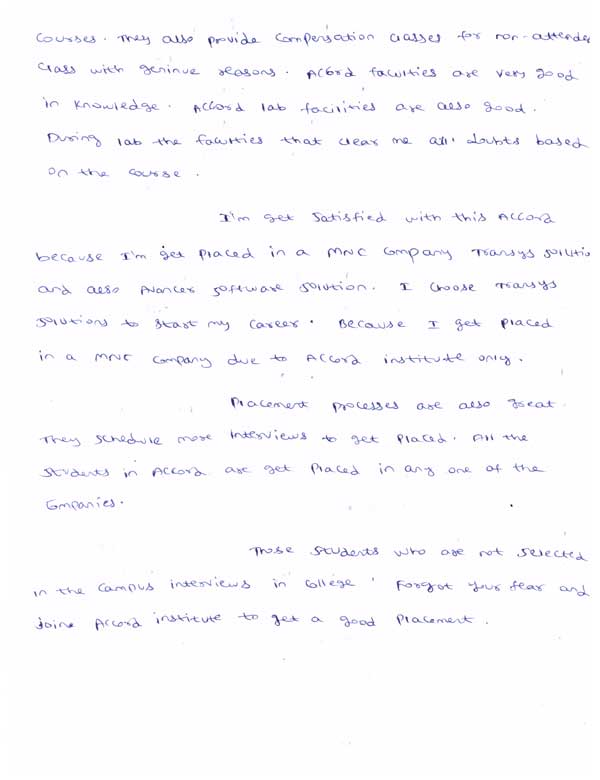 courses. They also provide compensation classes for non-attended
class with geninue reasons. Accord faculties are very good
in knowledge. Accord lab facilities are also good.
During lab the faculties that clear me all doubts based
on the course.
I'm get satisfied with this Accord
because I'm get placed in a MNC company Transys solution
and also Avancer software solution. I choose Transys
solutions to start my career. Because I get placed
in a MNC company due to Accord institute only.
Placement processes are also great.
They schedule more interviews to get placed. All the
students in Accord are get placed in any one of the
Companies.
Those students who are not selected
in the campus interviews in college, Forgot your fear and
joine Accord institute to get a good placement.